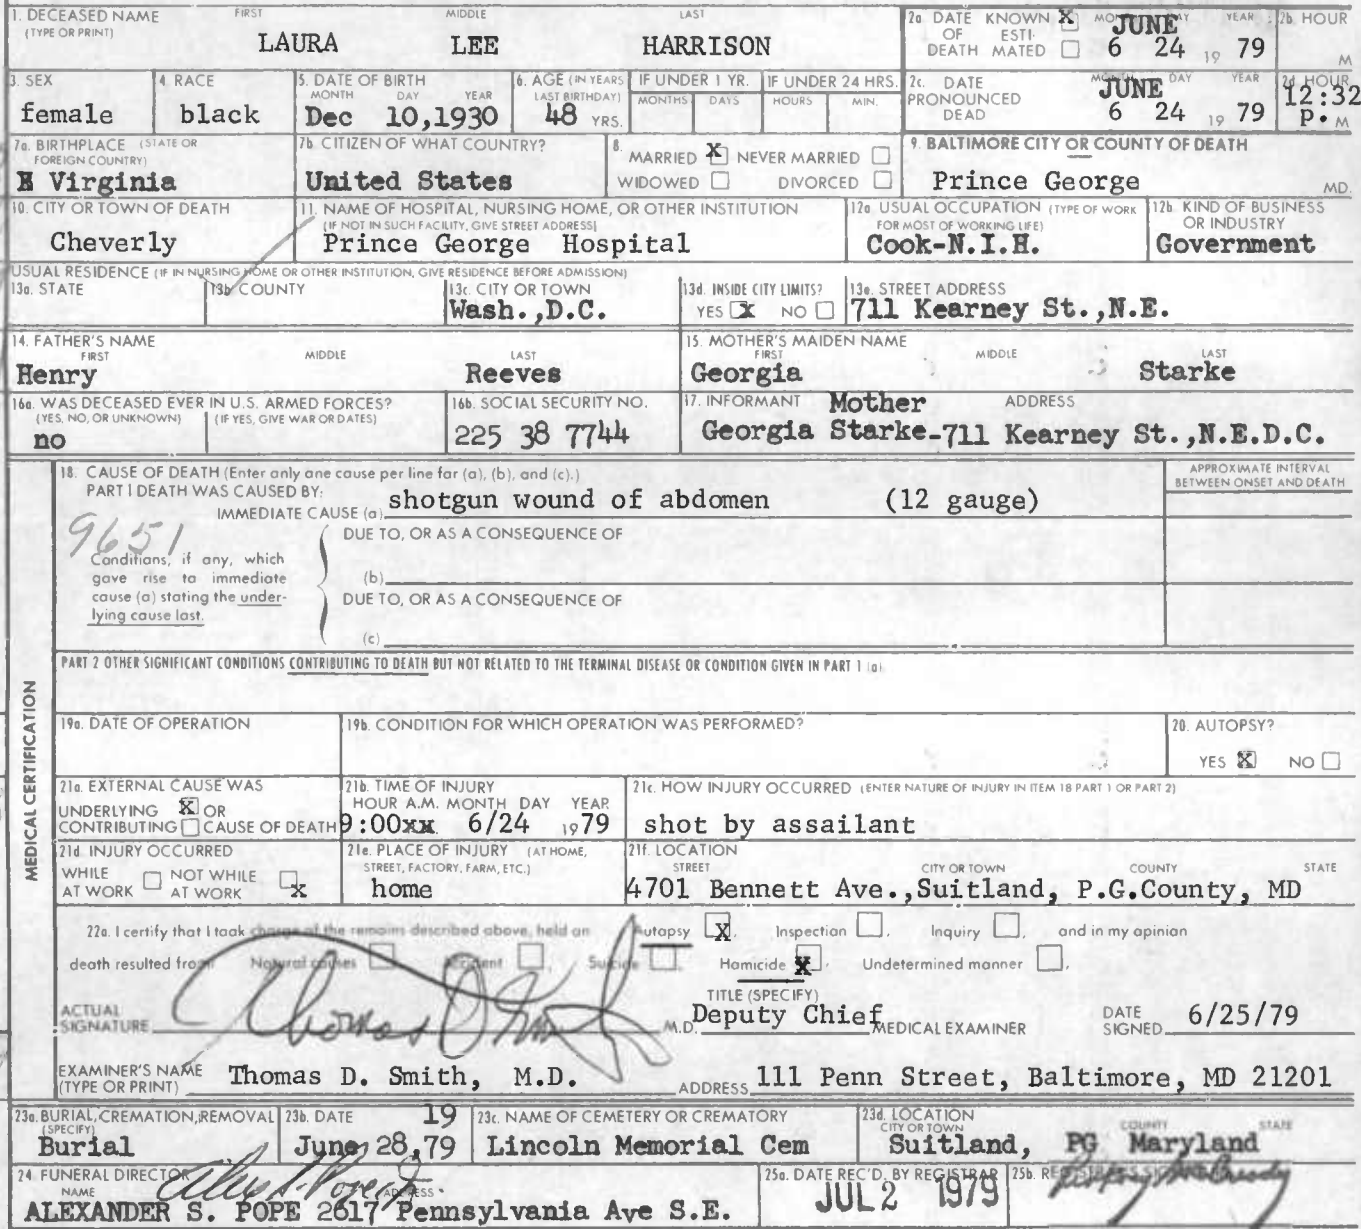 1. DECEASED NAME FIRST MIDDLE LAST
(TYPE OR PRINT)
LAURA LEE HARRISON
2a. DATE KNOWN X MONTH DAY YEAR
OF ESTI- JUNE
DEATH MATED 6 24 19 79
2b. HOUR
M
3. SEX
female
4. RACE
black
5. DATE OF BIRTH
MONTH DAY YEAR
Dec 10,1930
6. AGE (IN YEARS
LAST BIRTHDAY)
48 YRS.
IF UNDER 1 YR.
MONTHS DAYS
IF UNDER 24 HRS.
HOURS MIN.
2c. DATE MONTH DAY YEAR
PRONOUNCED JUNE
DEAD 6 24 19 79
2d. HOUR
12:32
P. M
7a. BIRTHPLACE (STATE OR
FOREIGN COUNTRY)
Virginia
7b. CITIZEN OF WHAT COUNTRY?
United States
8.
MARRIED X NEVER MARRIED
WIDOWED DIVORCED
9. BALTIMORE CITY OR COUNTY OF DEATH
Prince George MD.
10. CITY OR TOWN OF DEATH
Cheverly
11. NAME OF HOSPITAL, NURSING HOME, OR OTHER INSTITUTION
(IF NOT IN SUCH FACILITY, GIVE STREET ADDRESS)
Prince George Hospital
12a. USUAL OCCUPATION (TYPE OF WORK
FOR MOST OF WORKING LIFE)
Cook-N.I.H.
12b. KIND OF BUSINESS
OR INDUSTRY
Government
USUAL RESIDENCE (IF IN NURSING HOME OR OTHER INSTITUTION, GIVE RESIDENCE BEFORE ADMISSION)
13a. STATE
13b. COUNTY
13c. CITY OR TOWN
Wash.,D.C.
13d. INSIDE CITY LIMITS?
YES X NO
13e. STREET ADDRESS
711 Kearney St.,N.E.
14. FATHER'S NAME
FIRST MIDDLE LAST
Henry Reeves
15. MOTHER'S MAIDEN NAME
FIRST MIDDLE LAST
Georgia Starke
16a. WAS DECEASED EVER IN U.S. ARMED FORCES?
(YES, NO, OR UNKNOWN) (IF YES, GIVE WAR OR DATES)
no
16b. SOCIAL SECURITY NO.
225 38 7744
17. INFORMANT Mother ADDRESS
Georgia Starke-711 Kearney St.,N.E.D.C.
MEDICAL CERTIFICATION
18. CAUSE OF DEATH (Enter only one cause per line for (a), (b), and (c).)
PART I DEATH WAS CAUSED BY:
IMMEDIATE CAUSE (a) shotgun wound of abdomen (12 gauge)
APPROXIMATE INTERVAL
BETWEEN ONSET AND DEATH
9651
Conditions, if any, which
gave rise to immediate
cause (a) stating the under-
lying cause last.
DUE TO, OR AS A CONSEQUENCE OF
(b)
DUE TO, OR AS A CONSEQUENCE OF
(c)
PART 2 OTHER SIGNIFICANT CONDITIONS CONTRIBUTING TO DEATH BUT NOT RELATED TO THE TERMINAL DISEASE OR CONDITION GIVEN IN PART 1 (a)
19a. DATE OF OPERATION
19b. CONDITION FOR WHICH OPERATION WAS PERFORMED?
20. AUTOPSY?
YES X NO
21a. EXTERNAL CAUSE WAS
UNDERLYING X OR
CONTRIBUTING CAUSE OF DEATH
21b. TIME OF INJURY
HOUR A.M. MONTH DAY YEAR
9:00xx 6/24 1979
21c. HOW INJURY OCCURRED (ENTER NATURE OF INJURY IN ITEM 18 PART 1 OR PART 2)
shot by assailant
21d. INJURY OCCURRED
WHILE NOT WHILE
AT WORK AT WORK x
21e. PLACE OF INJURY (AT HOME,
STREET, FACTORY, FARM, ETC.)
home
21f. LOCATION
STREET CITY OR TOWN COUNTY STATE
4701 Bennett Ave.,Suitland, P.G.County, MD
22a. I certify that I took charge of the remains described above, held an Autopsy X, Inspection , Inquiry , and in my opinion
death resulted from Natural causes , Accident , Suicide , Homicide X, Undetermined manner ,
ACTUAL
SIGNATURE Thomas D Smith M.D.
TITLE (SPECIFY)
Deputy Chief MEDICAL EXAMINER
DATE
SIGNED 6/25/79
EXAMINER'S NAME
(TYPE OR PRINT) Thomas D. Smith, M.D. ADDRESS 111 Penn Street, Baltimore, MD 21201
23a. BURIAL, CREMATION, REMOVAL
(SPECIFY)
Burial
23b. DATE 19
June 28,79
23c. NAME OF CEMETERY OR CREMATORY
Lincoln Memorial Cem
23d. LOCATION
CITY OR TOWN COUNTY STATE
Suitland, PG Maryland
24. FUNERAL DIRECTOR
NAME ADDRESS
ALEXANDER S. POPE 2617 Pennsylvania Ave S.E.
25a. DATE REC'D. BY REGISTRAR
JUL 2 1979
25b.